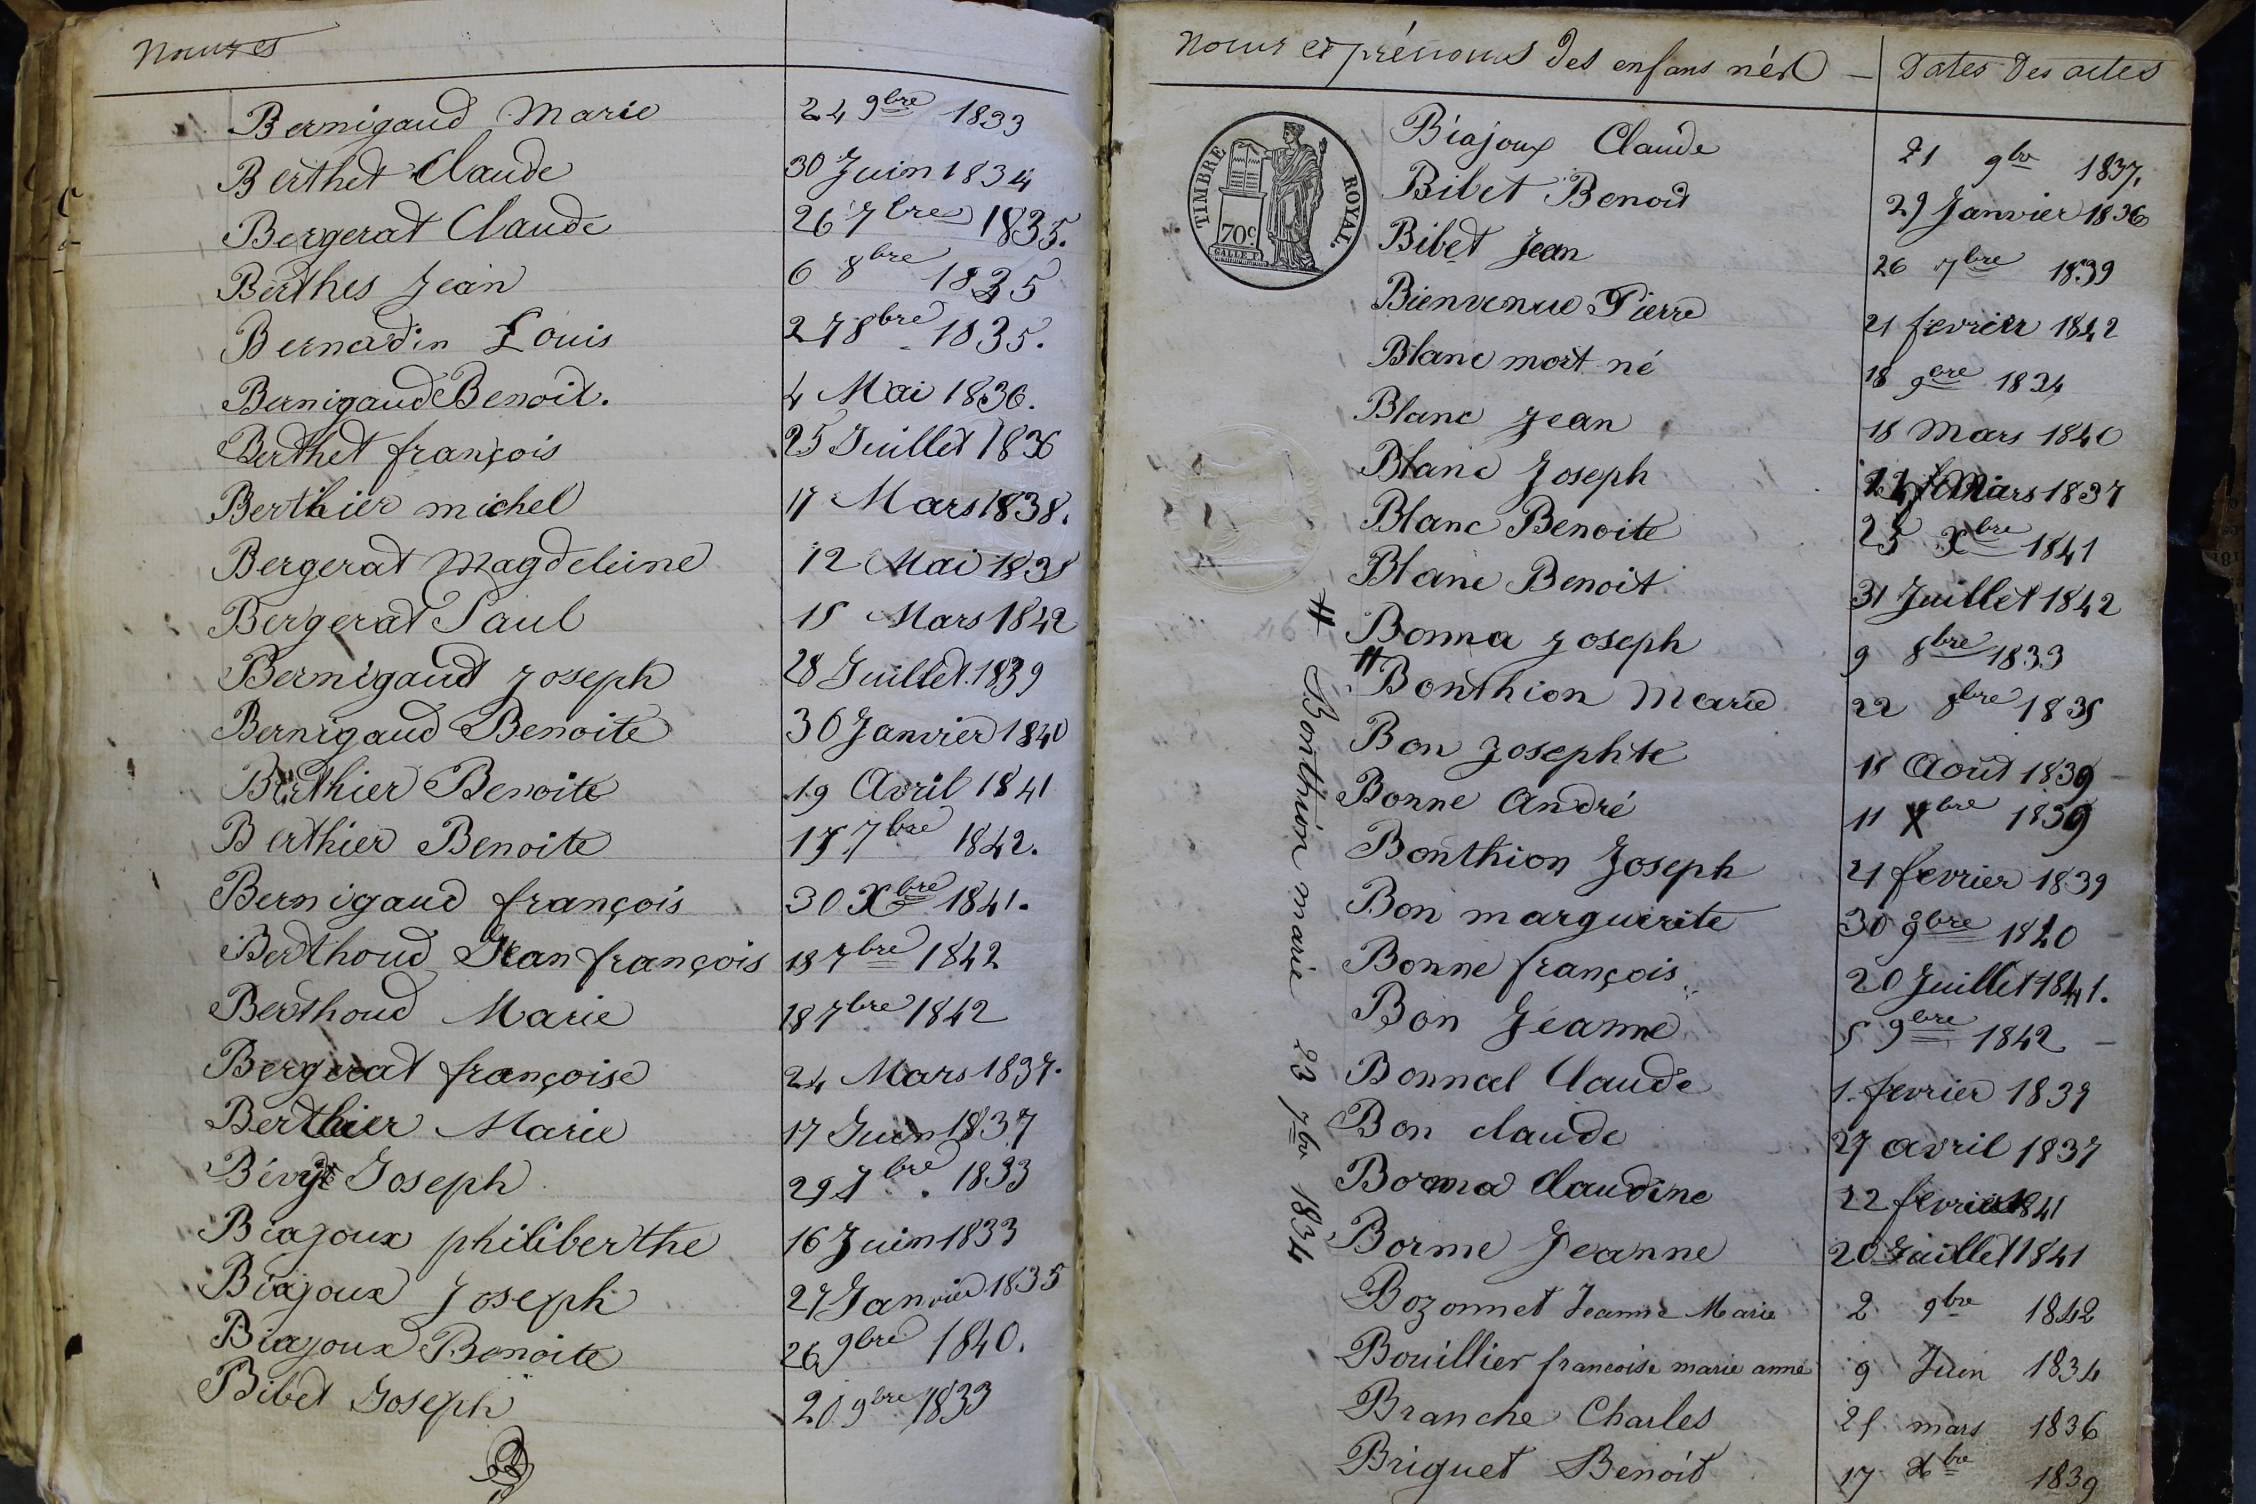 Noms et
Bernigaud Marie 24 9bre 1833
Berthet Claude 30 Juin 1834
Bergerat Claude 26 7bre 1835.
Berthes Jean 6 8bre 1835
Bernadin Louis 27 8bre 1835.
Bernigaud Benoit. 4 Mai 1836.
Berthet françois 25 Juillet 1836
Berthier michel 17 Mars 1838.
Bergerat Magdeleine 12 Mai 1838
Bergerat Paul 15 Mars 1842
Bernigaud Joseph 28 Juillet 1839
Bernigaud Benoite 30 Janvier 1840
Berthier Benoite 19 Avril 1841
Berthier Benoite 15 7bre 1842.
Bernigaud françois 30 Xbre 1841.
Berthoud Jean françois 18 7bre 1842
Berthoud Marie 18 7bre 1842
Bergerat françoise 24 Mars 1837.
Berthier Marie 17 Juin 1837
Joseph 29 7bre 1833
Biajoux philiberthe 16 Juin 1833
Biajoux Joseph 27 Janvier 1835
Biajoux Benoite 26 9bre 1840.
Bibet Joseph 20 9bre 1833
Noms et prénoms des enfans nés — Dates des actes
TIMBRE ROYAL.
70c
Biajoux Claude 21 9bre 1837.
Bibet Benoit 29 Janvier 1836
Bibet Jean 26 7bre 1839
Bienvenue Pierre 21 fevrier 1842
Blanc mort né 18 9bre 1834
Blanc Jean 18 Mars 1840
Blanc Joseph Mars 1837
Blanc Benoite 25 Xbre 1841
Blanc Benoit 31 Juillet 1842
Bonna Joseph 9 8bre 1833
# Bonthion Marie 22 8bre 1835
Bon Josephte 18 Aout 1839
Bonne André 11 Xbre 1839
Bonthion Joseph 21 fevrier 1839
Bon marguerite 30 9bre 1840
Bonne françois 20 Juillet 1841.
Bon Jeanne 5 9bre 1842
Bonnael Claude 1. fevrier 1839
Bon claude 27 avril 1837
Claudine 22 fevrier 1841
Borme Jeanne 20 Juillet 1841
Bozonnet Jeanne Marie 2 9bre 1842
Bouillier francoise marie anne 9 Juin 1834
Branche Charles 25 mars 1836
Briguet Benoit 17 Xbre 1839
# Bonthion marie 23 7bre 1834